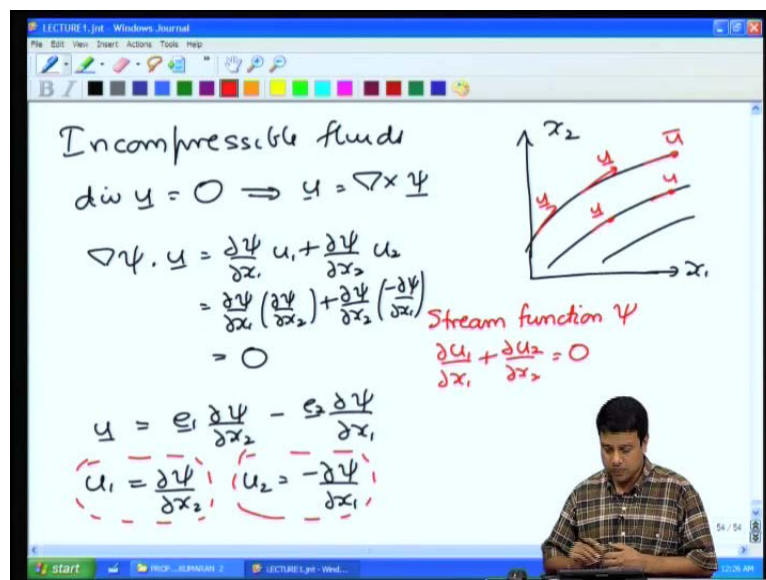 LECTURE1.jnt - Windows Journal
File Edit View Insert Actions Tools Help
B I
Incompressible fluids
div u = 0 ⟹ u = ∇×Ψ
∇Ψ . u = ∂Ψ/∂x₁ u₁ + ∂Ψ/∂x₂ u₂
= ∂Ψ/∂x₁ (∂Ψ/∂x₂) + ∂Ψ/∂x₂ (-∂Ψ/∂x₁)
= 0
u = e₁ ∂Ψ/∂x₂ - e₂ ∂Ψ/∂x₁
u₁ = ∂Ψ/∂x₂ u₂ = -∂Ψ/∂x₁
x₂
u u u
u u
x₁
Stream function Ψ
∂u₁/∂x₁ + ∂u₂/∂x₂ = 0
54 / 54
start
PROF...KUMARAN 2
LECTURE1.jnt - Wind...
12:26 AM